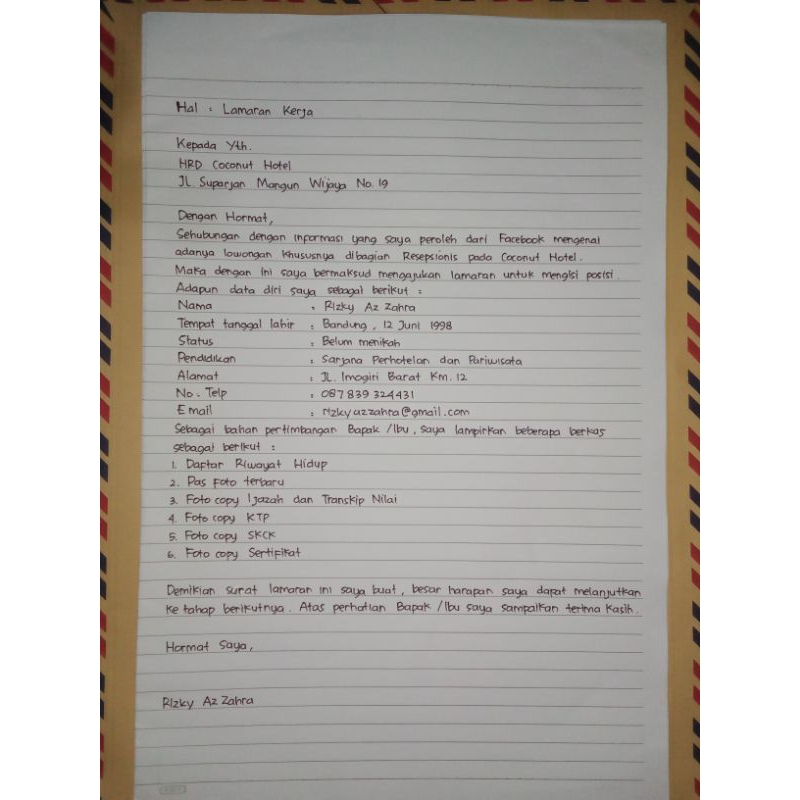 Hal : Lamaran Kerja
Kepada Yth.
HRD Coconut Hotel
Jl. Suparjan Mangun Wijaya No. 19
Dengan Hormat,
Sehubungan dengan informasi yang saya peroleh dari Facebook mengenai
adanya lowongan khususnya dibagian Resepsionis pada Coconut Hotel.
Maka dengan ini saya bermaksud mengajukan lamaran untuk mengisi posisi.
Adapun data diri saya sebagai berikut :
Nama : Rizky Az Zahra
Tempat tanggal lahir : Bandung, 12 Juni 1998
Status : Belum menikah
Pendidikan : Sarjana Perhotelan dan Pariwisata
Alamat : JL. Imogiri Barat Km. 12
No. Telp : 087 839 324431
Email : rizkyazzahra@gmail.com
Sebagai bahan pertimbangan Bapak / Ibu, saya lampirkan beberapa berkas
sebagai berikut :
1. Daftar Riwayat Hidup
2. Pas foto terbaru
3. Foto copy Ijazah dan Transkip Nilai
4. Foto copy KTP
5. Foto copy SKCK
6. Foto copy Sertifikat
Demikian surat lamaran ini saya buat, besar harapan saya dapat melanjutkan
ke tahap berikutnya. Atas perhatian Bapak / Ibu saya sampaikan terima kasih.
Hormat Saya,
Rizky Az Zahra